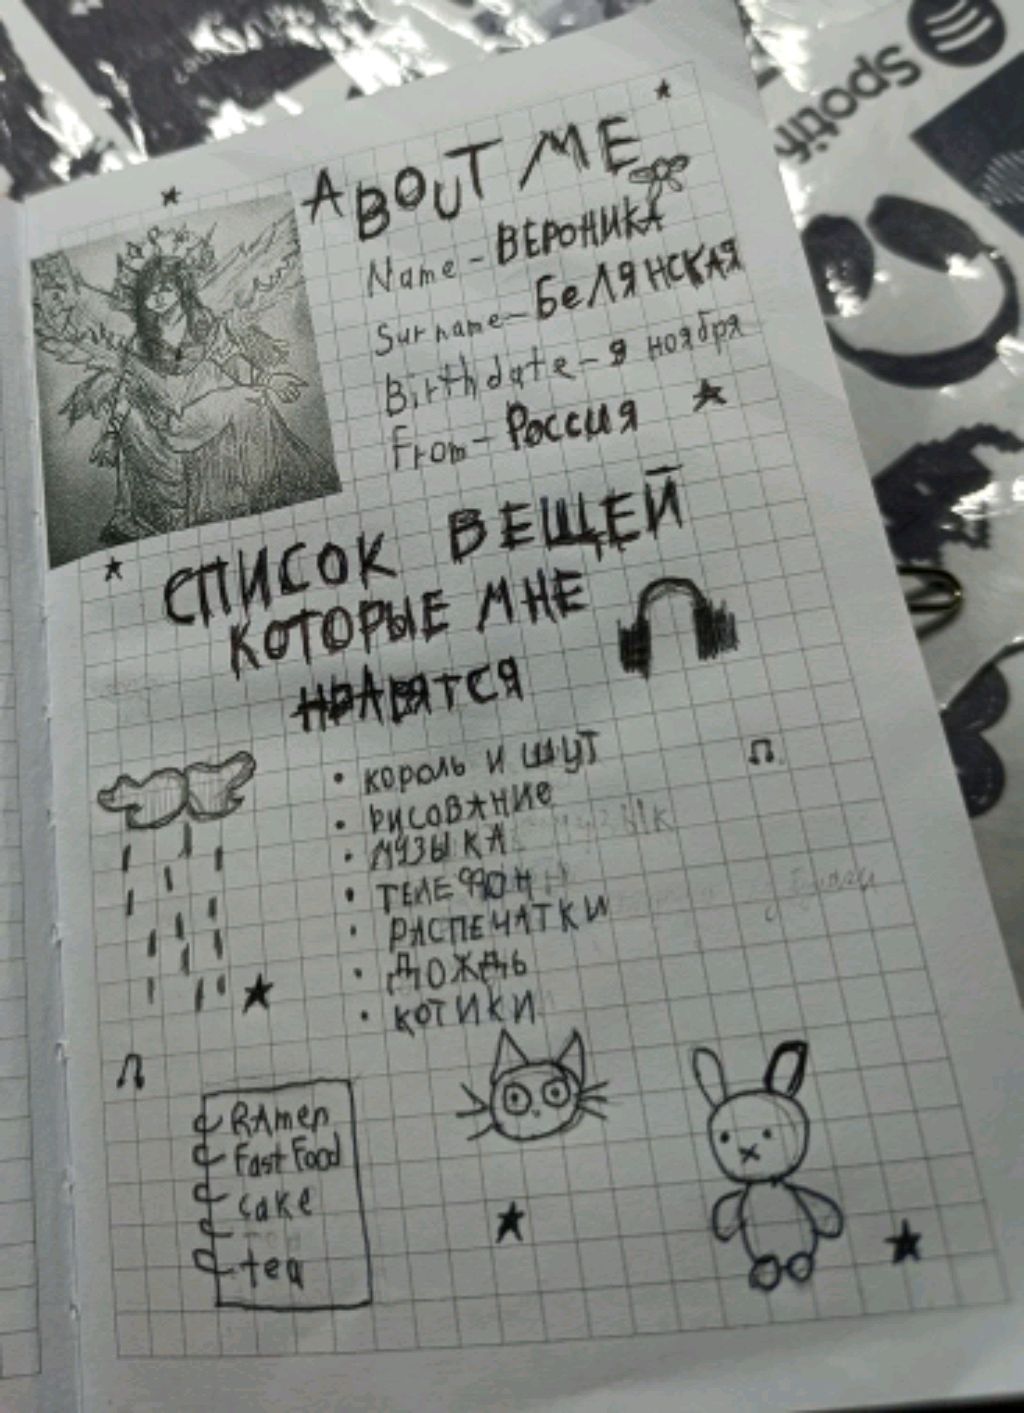 ABOUT ME
Name - ВЕРОНИКА
Surname - БеЛЯНСКАЯ
Birthdate - 9 ноября
From - Россия
СПИСОК ВЕЩЕЙ
КОТОРЫЕ МНЕ
НРАВЯТСЯ
• КОРОЛЬ И ШУТ
• РИСОВАНИе
• МУЗЫКА
• ТЕЛЕФОН
• РАСПЕЧАТКИ
• ДОЖДЬ
• КОТИКИ
RAmen
Fast Food
cake
tea
Spotif